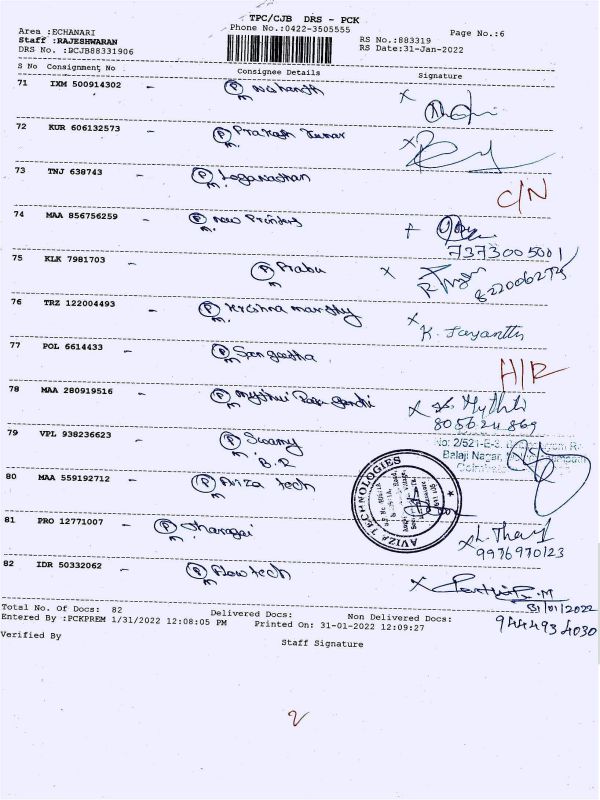 TPC/CJB DRS - PCK
Area :ECHANARI Phone No.:0422-3505555 Page No.:6
Staff :RAJESHWARAN RS No.:883319
DRS No. :BCJB88331906 RS Date:31-Jan-2022
S No Consignment No Consignee Details Signature
71 IXM 500914302 -
72 KUR 606132573 - P Prakash Kumar
m.
73 TNJ 638743 - P Loganathan
m. C/N
74 MAA 856756259 - P New Printers
m. 7373005001
75 KLK 7981703 - P Prabu
m
76 TRZ 122004493 - P Krishna marthy
m. K. Jayanthi
77 POL 6614433 - P Sangeetha
m H/R
78 MAA 280919516 - P
m 805624869
79 VPL 938236623 - P Swamy No: 2/521-E-3,
m B.R Balaji Nagar,
80 MAA 559192712 - P Aviza tech AVIZA TECHNOLOGIES
m
81 PRO 12771007 - P
m. 9976970123
82 IDR 50332062 - P Flowtech
m. 31/01/2022
Total No. Of Docs: 82 Delivered Docs: Non Delivered Docs:
Entered By :PCKPREM 1/31/2022 12:08:05 PM Printed On: 31-01-2022 12:09:27 9444934030
Verified By Staff Signature
2